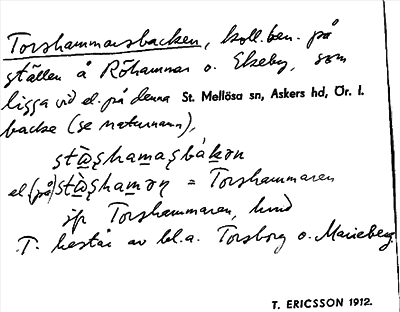 Torshammarsbacken, koll. ben. på
ställen å Röhammar o. Ekeby, som
ligga vid el. på denna St. Mellösa sn, Askers hd, Ör. l.
backe (se naturnamn),
el. (på) = Torshammaren
jfr Torshammaren, hvid
T. består av bl.a. Torsborg o. Marieberg.
T. ERICSSON 1912.